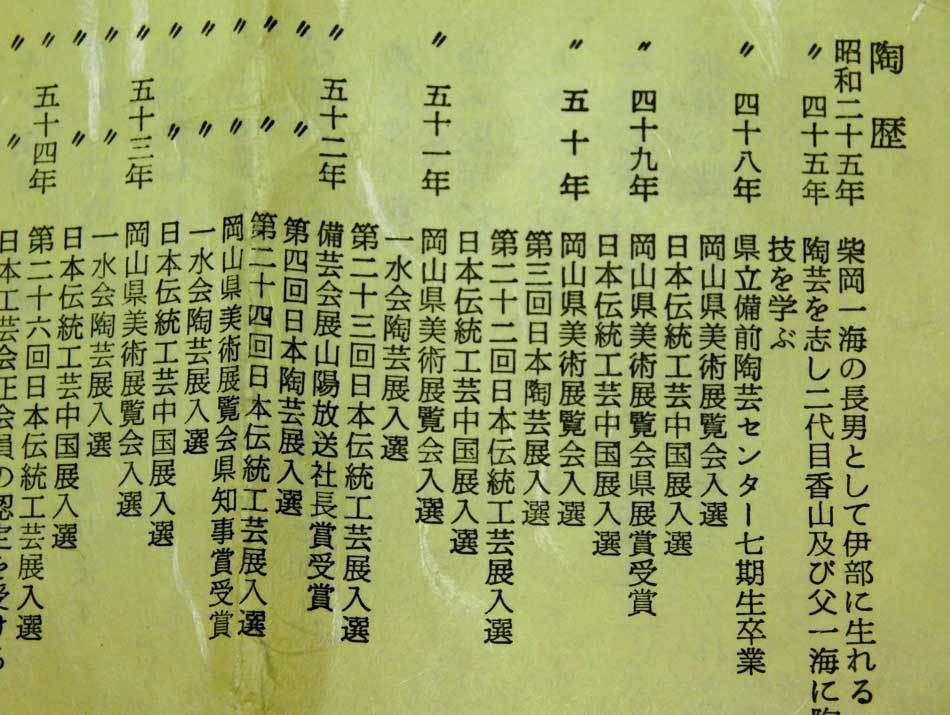 陶歴
昭和二十五年 柴岡一海の長男として伊部に生れる
〃 四十五年 陶芸を志し二代目香山及び父一海に陶
技を学ぶ
〃 四十八年 県立備前陶芸センター七期生卒業
岡山県美術展覧会入選
日本伝統工芸中国展入選
〃 四十九年 岡山県美術展覧会県展賞受賞
日本伝統工芸中国展入選
〃 五十年 岡山県美術展覧会入選
第三回日本陶芸展入選
第二十二回日本伝統工芸展入選
日本伝統工芸中国展入選
〃 五十一年 岡山県美術展覧会入選
一水会陶芸展入選
第二十三回日本伝統工芸展入選
〃 五十二年 備芸会展山陽放送社長賞受賞
〃 〃 第四回日本陶芸展入選
〃 〃 第二十四回日本伝統工芸展入選
〃 〃 岡山県美術展覧会県知事賞受賞
〃 〃 一水会陶芸展入選
〃 〃 日本伝統工芸中国展入選
〃 五十三年 岡山県美術展覧会入選
〃 〃 一水会陶芸展入選
〃 〃 日本伝統工芸中国展入選
〃 五十四年 第二十六回日本伝統工芸展入選
〃 〃 日本工芸会正会員の認定を受ける